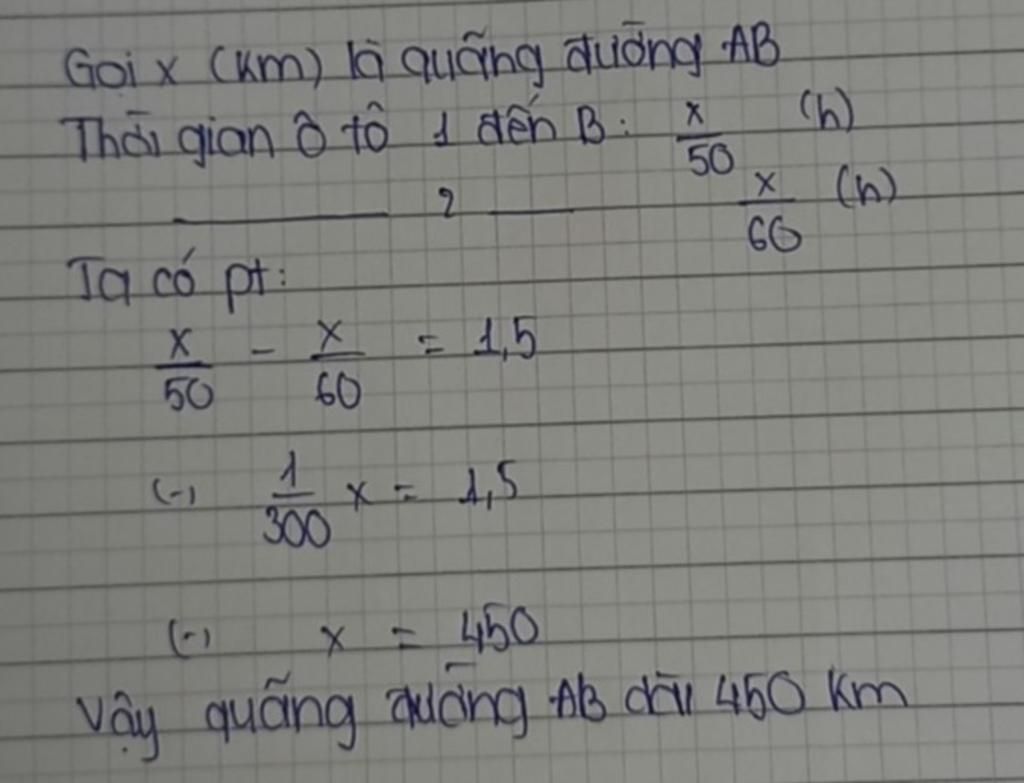 Gọi x (km) là quãng đường AB
Thời gian ô tô 1 đến B: x/50 (h)
_______ 2 ___ x/60 (h)
Ta có pt:
x/50 - x/60 = 1,5
(-) 1/300 x = 1,5
(-) x = 450
Vậy quãng đường AB dài 450 km